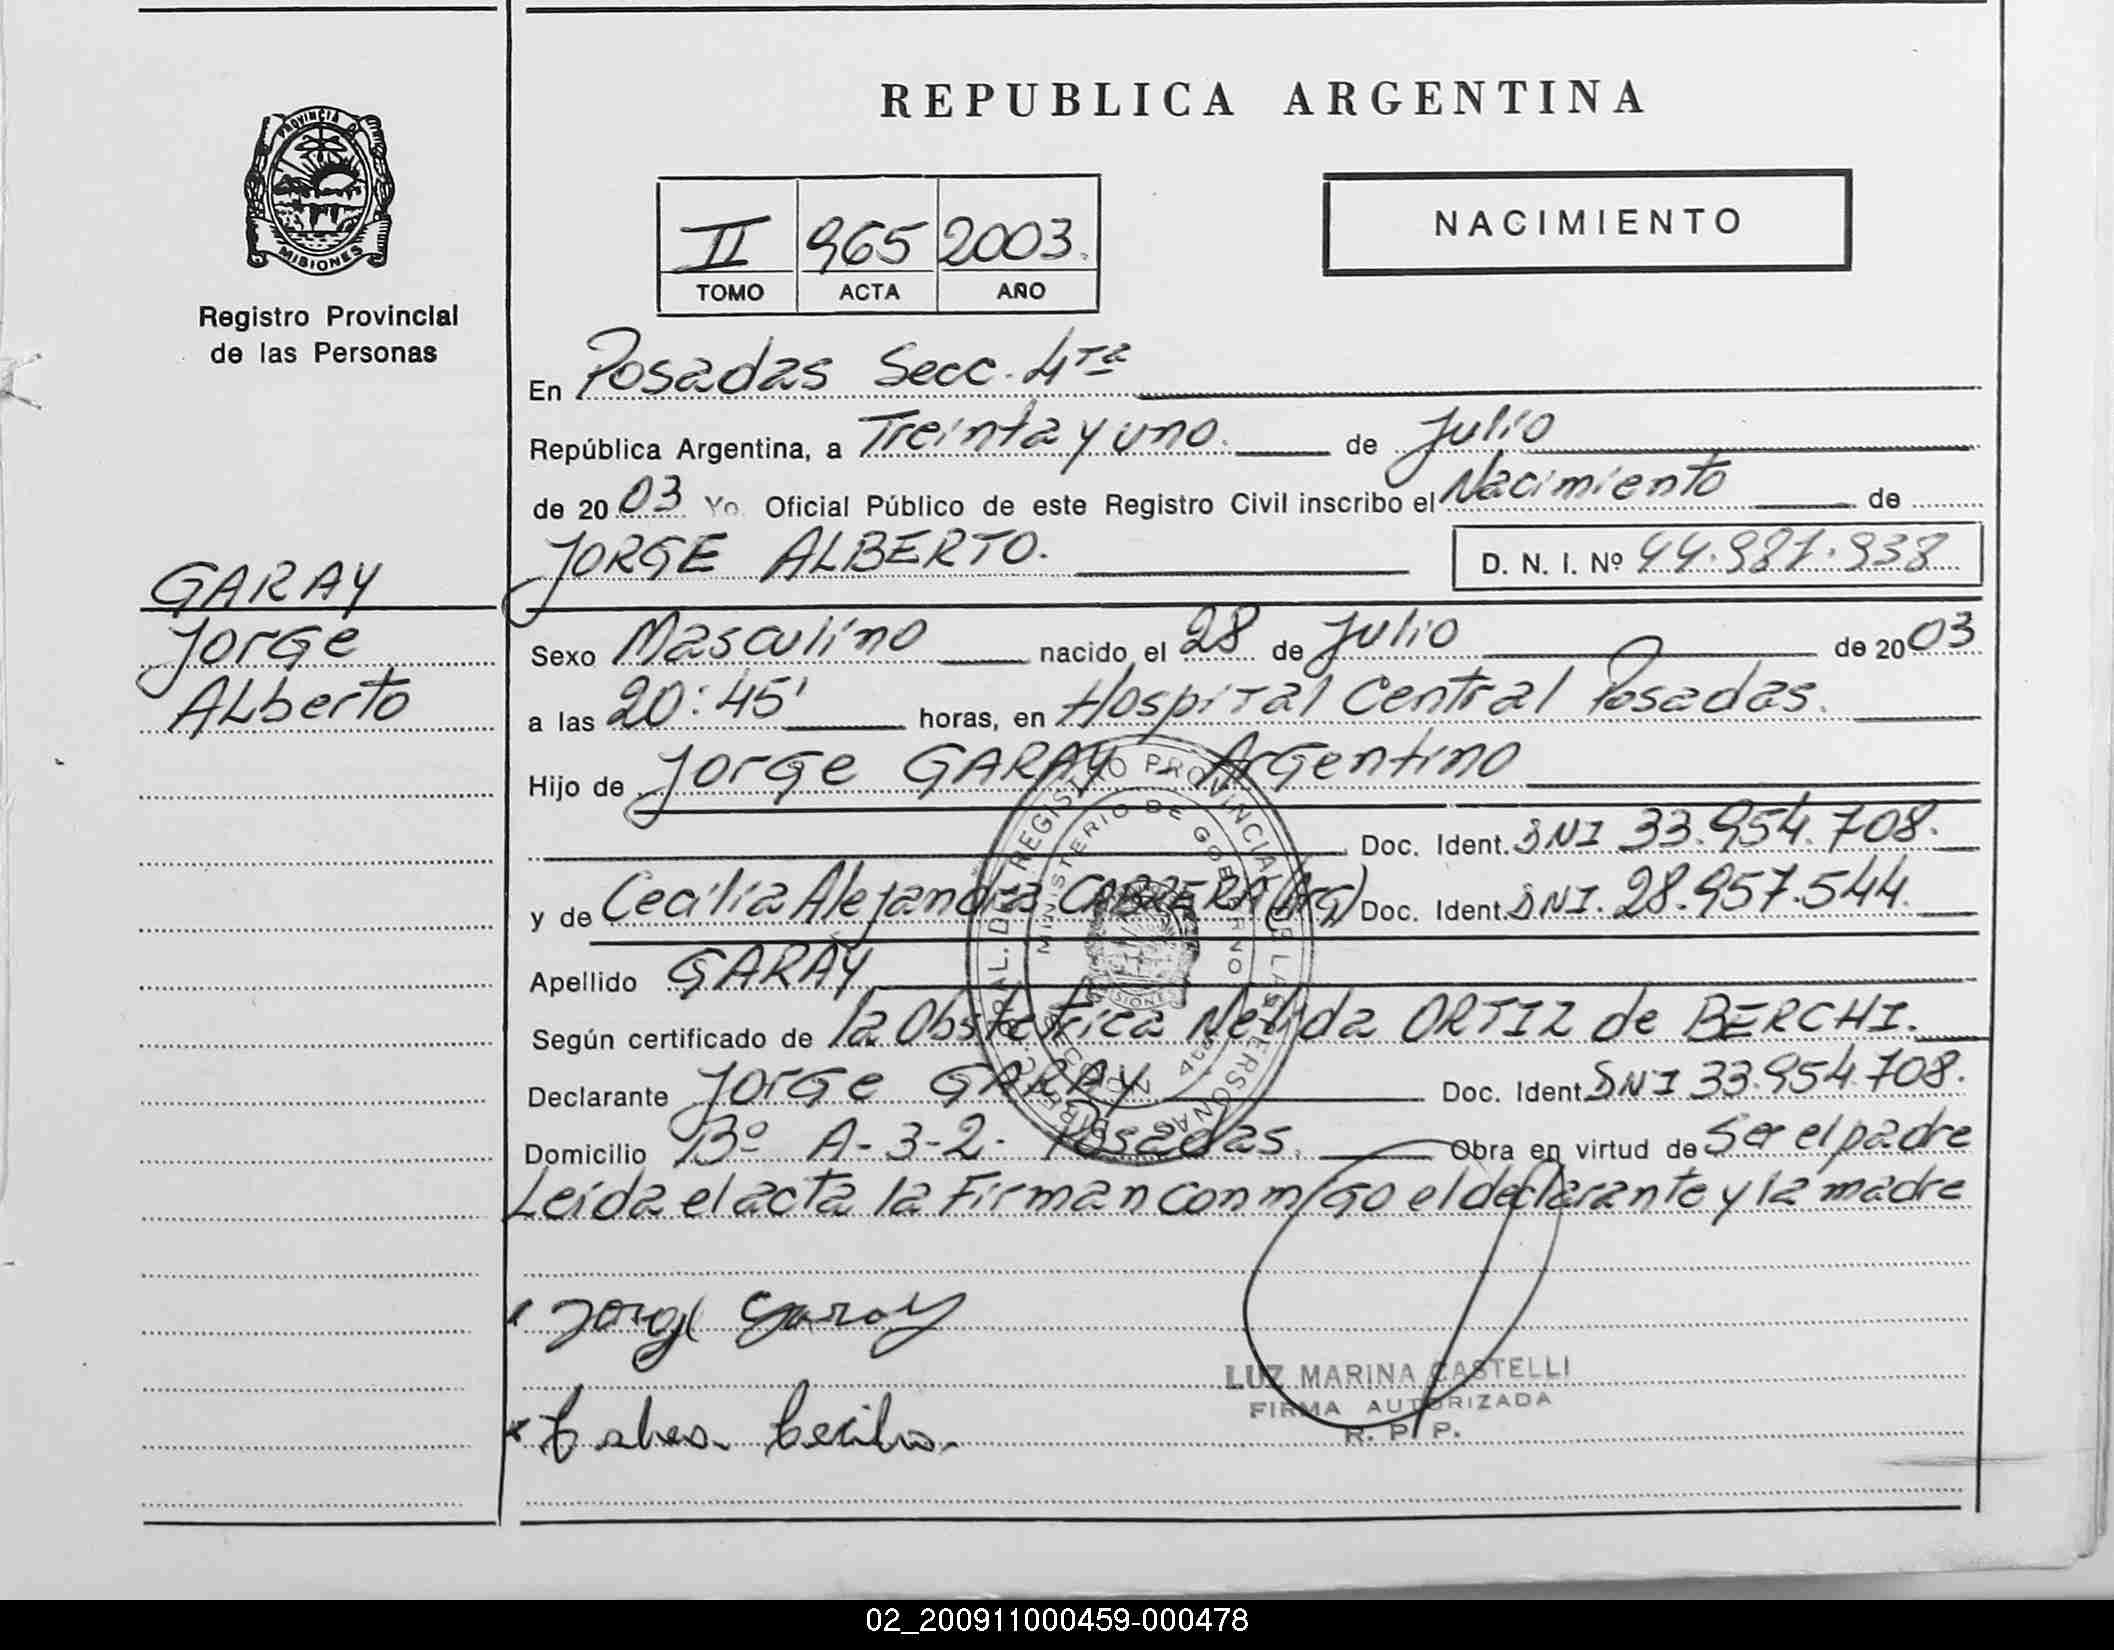 REPUBLICA ARGENTINA
PROVINCIA DE MISIONES
Registro Provincial
de las Personas
II 965 2003.
TOMO ACTA AÑO
NACIMIENTO
En Posadas Secc. 4ta
República Argentina, a Treinta y uno. de Julio
de 2003 Yo Oficial Público de este Registro Civil inscribo el Nacimiento de
JORGE ALBERTO. D. N. I. Nº 44.987.938
GARAY
Jorge
Alberto
Sexo Masculino nacido el 28 de Julio de 2003
a las 20:45' horas, en Hospital Central Posadas.
Hijo de Jorge GARAY - Argentino
Doc. Ident. DNI 33.954.708.
y de Cecilia Alejandra CABRERA (Arg) Doc. Ident. DNI. 28.957.544.
Apellido GARAY
Según certificado de la Obstetrica Nelida ORTIZ de BERCHI.
Declarante Jorge GARAY Doc. Ident. DNI 33.954.708.
Domicilio Bº A-3-2- Posadas. Obra en virtud de Ser el padre
Leída el acta la Firman conmigo el declarante y la madre
Jorge Garay
Cecilia
LUZ MARINA CASTELLI
FIRMA AUTORIZADA
R. P. P.
REGISTRO PROVINCIAL DE LAS PERSONAS
MINISTERIO DE GOBIERNO
MISIONES
4ta
02_200911000459-000478